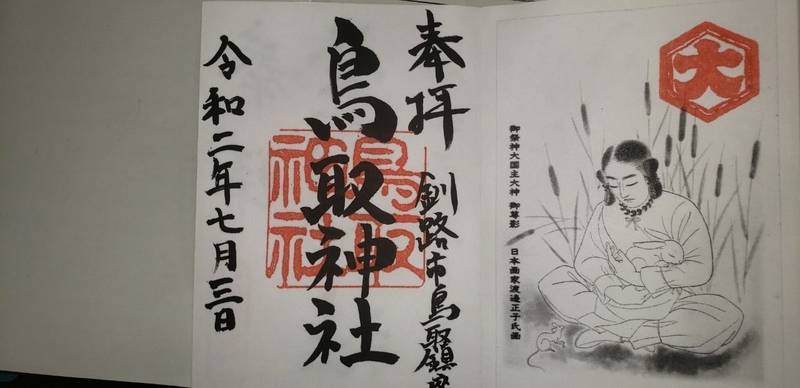 大
御祭神大国主大神 御尊影 日本画家渡邊正子氏画
奉拝
釧路市鳥取鎮座
鳥取神社
鳥取
神社
令和二年七月三日